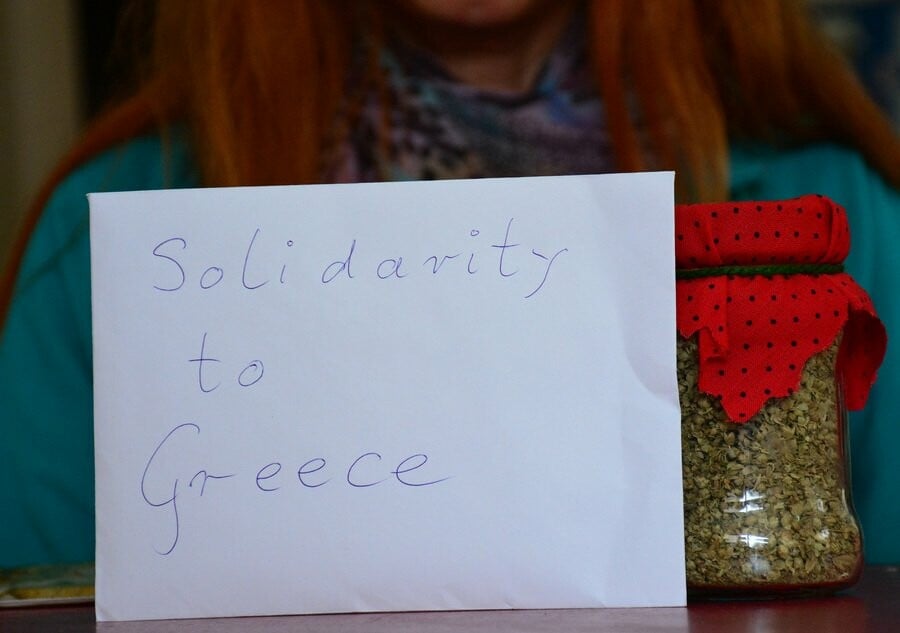 Solidarity
to
Greece